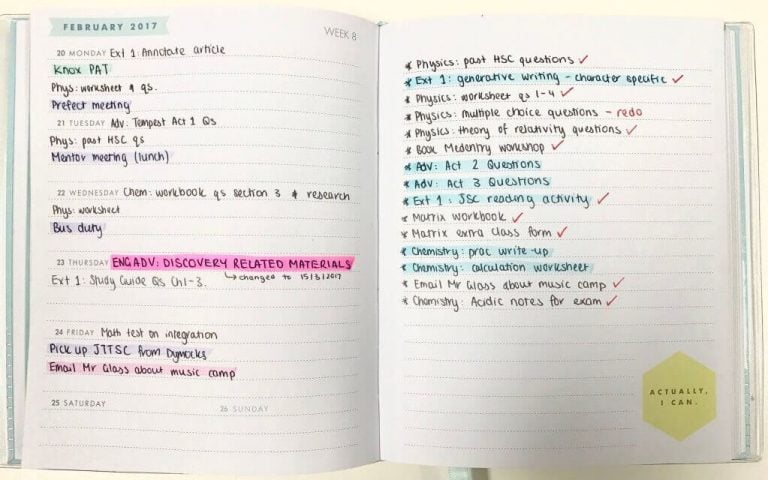 FEBRUARY 2017
WEEK 8
20 MONDAY Ext 1: Annotate article
Knox PAT
Phys: worksheet & qs.
Prefect meeting
21 TUESDAY Adv: Tempest Act 1 Qs
Phys: past HSC qs
Mentor meeting (lunch)
22 WEDNESDAY Chem: workbook qs section 3 & research
Phys: worksheet
Bus duty
23 THURSDAY ENGADV: DISCOVERY RELATED MATERIALS
↳ changed to 15/3/2017
Ext 1: Study Guide Qs Ch1-3.
24 FRIDAY Math test on integration
Pick up JTTSC from Dymocks
Email Mr Glass about music camp
25 SATURDAY
26 SUNDAY
* Physics: past HSC questions ✓
* Ext 1: generative writing - character specific ✓
* Physics: worksheet qs 1-4 ✓
* Physics: multiple choice questions - redo
* Physics: theory of relativity questions ✓
* Book Medentry workshop ✓
* Adv: Act 2 Questions
* Adv: Act 3 Questions
* Ext 1: JSC reading activity ✓
* Matrix workbook ✓
* Matrix extra class form ✓
* Chemistry: prac write-up
* Chemistry: calculation worksheet
* Email Mr Glass about music camp ✓
* Chemistry: Acidic notes for exam ✓
ACTUALLY,
I CAN.